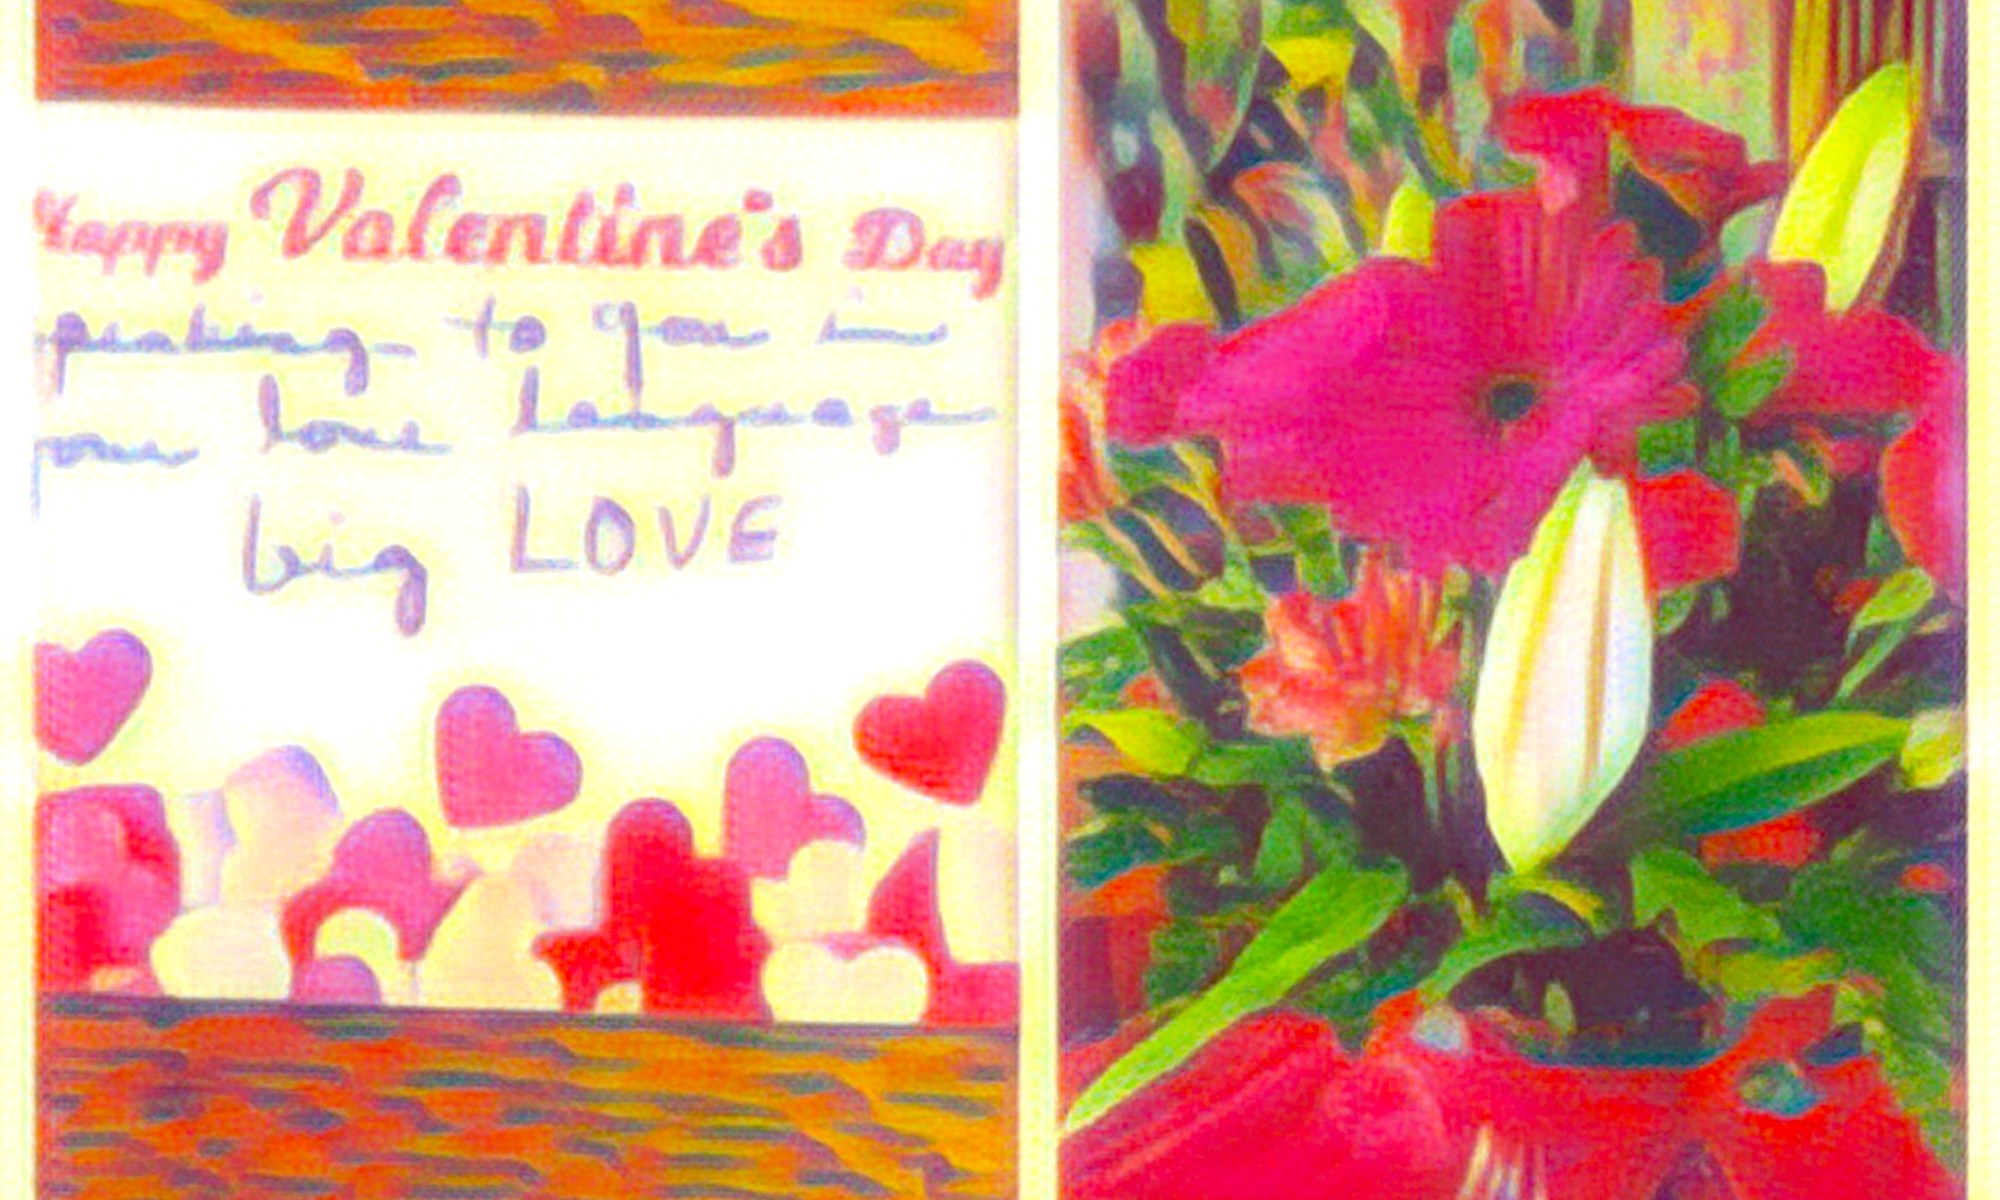 Happy Valentine's Day
speaking to you in
your love language
big LOVE